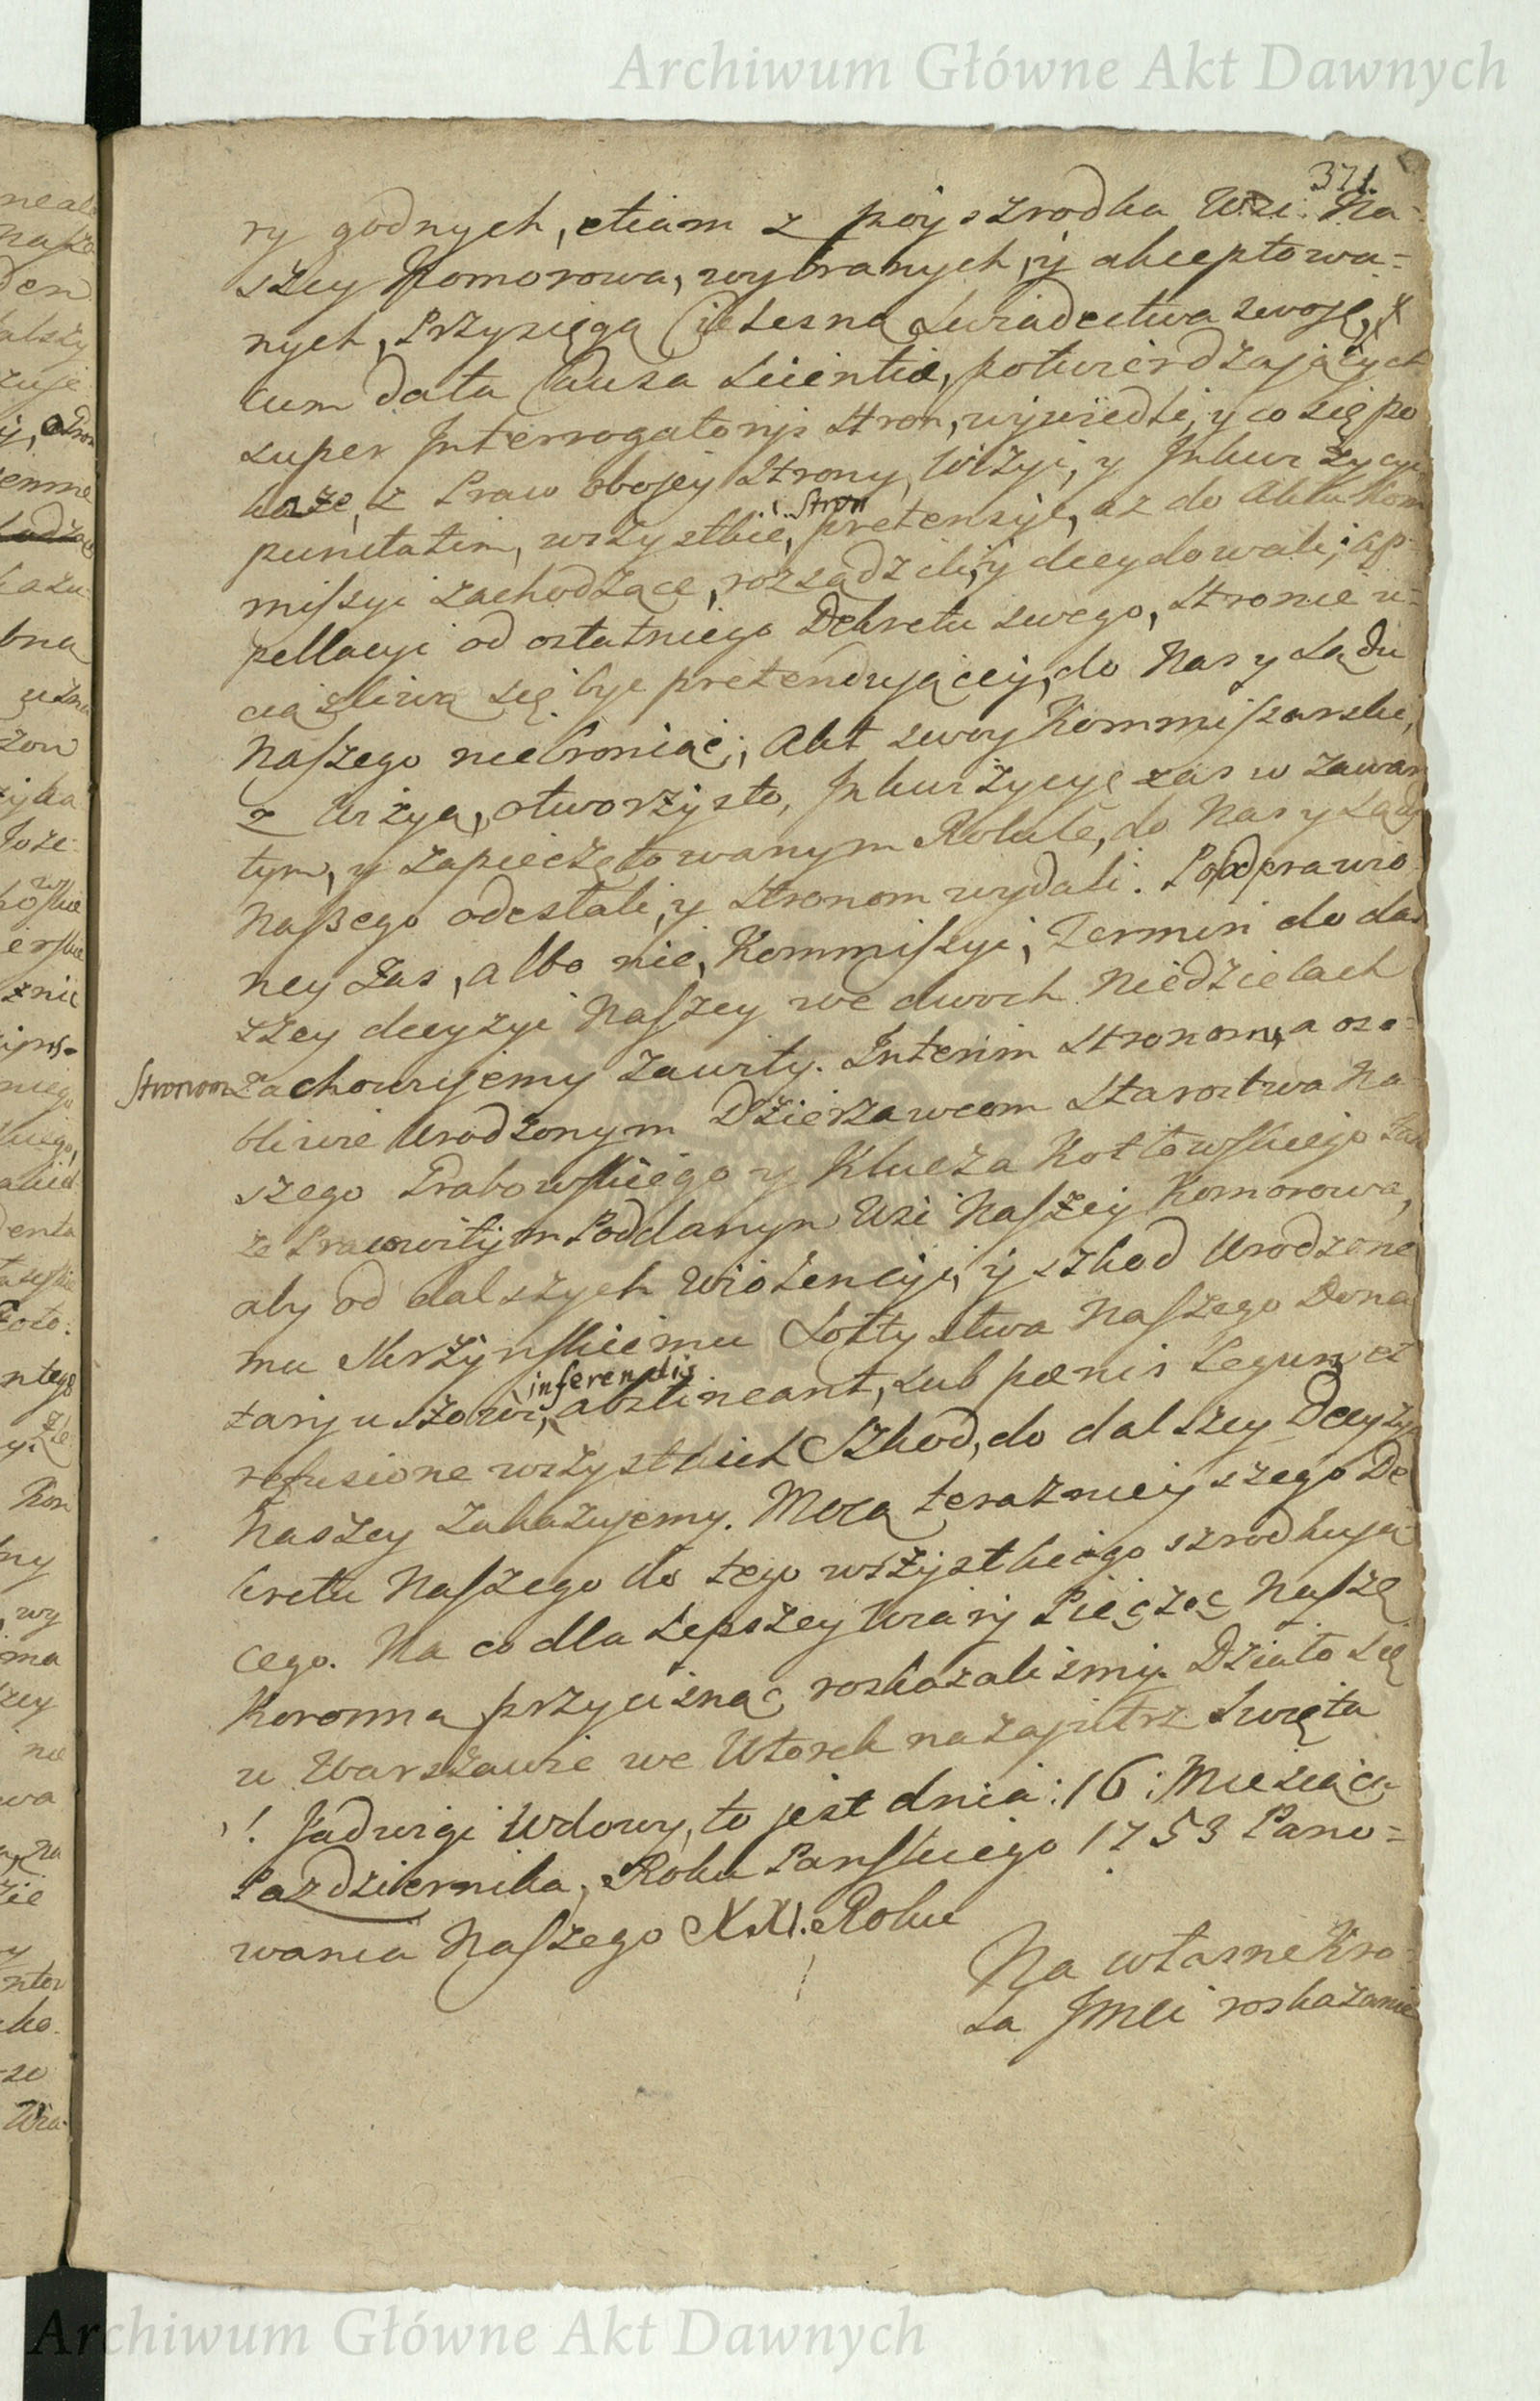 Archiwum Główne Akt Dawnych
371.
ry godnych, etiam z pojszrodka Wsi Na-
szey Komorowa, wybranych, y akceptowa-
nych, Przysięgą Cielesną Swiadectwa swoję,
cum data Causa Scientiæ, potwierdzających
super Interrogatorijs Stron, wywiedli, y co się po
każe, z Praw obojey Strony, Wizyi, y Inkwizycyi
Stron
punctatim, wszystkie, pretensyje, az do Aktu Kom
missyi zachodzące, rozsądzili, y decydowali; ap-
pellacyi od ostatniego Dekretu swego, Stronie u-
ciążliwą się byc pretendującey, do Nas y Sądu
Naszego niebroniąc; Akt swoy Kommissarski,
z Wizyą, otworzysto, Inkwizycyę zas w zawar
tym, y zapieczętowanym Rotule, do Nas y Sądu
Naszego odesłali, y Stronom wydali. Po odprawio
ney zas, albo nie, Kommissyi, Termin do dal
szey decyzyi Naszey we dwoch Niedzielach
Stronom zachowujemy zawity. Interim Stronom, a oso-
bliwie Urodzonym Dzierzawcom Starostwa Na
szego Grabowskiego y Klucza Kotłowskiego Tak
ze Pracowitym Poddanym Wsi Naszey Komorowa,
aby od dalszych Wiolencyi, y szkod Urodzone
mu Skrzynskiemu Sołtystwa Naszego Dona
inferendis
taryuszowi, abstineant, sub pœnis Legum et
refusione wszystkich Szkod, do dalszey Decyzyi
Naszey zakazujemy. Mocą teraznieyszego De
kretu Naszego do tego wszystkiego szrodkują
cego. Na co dla Lepszey Wiary Pieczęć Naszę
Koronną przycisnąc roskazalismy. Działo się
w Warszawie we Wtorek nazajutrz Swięta
S. Jadwigi Wdowy, to jest dnia: 16: Miesiąca
Pazdziernika, Roku Panskiego 1753 Pano-
wania Naszego XXI. Roku
Na własne Kro-
la Jmci roskazanie
Archiwum Główne Akt Dawnych